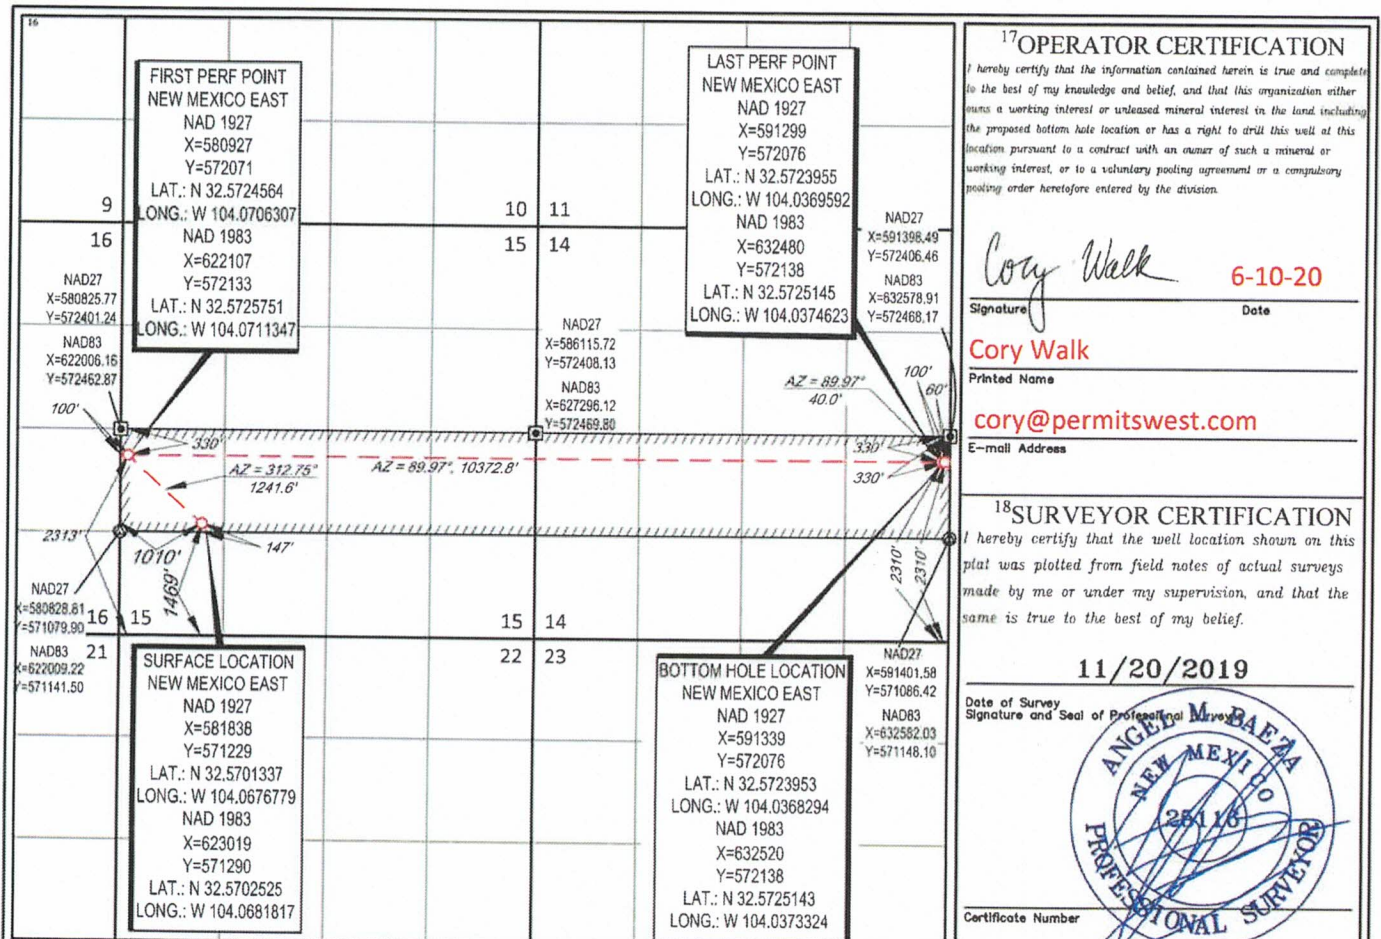 16
FIRST PERF POINT
NEW MEXICO EAST
NAD 1927
X=580927
Y=572071
LAT.: N 32.5724564
LONG.: W 104.0706307
NAD 1983
X=622107
Y=572133
LAT.: N 32.5725751
LONG.: W 104.0711347
LAST PERF POINT
NEW MEXICO EAST
NAD 1927
X=591299
Y=572076
LAT.: N 32.5723955
LONG.: W 104.0369592
NAD 1983
X=632480
Y=572138
LAT.: N 32.5725145
LONG.: W 104.0374623
9
16
10 11
15 14
NAD27
X=591398.49
Y=572406.46
NAD83
X=632578.91
Y=572468.17
NAD27
X=580825.77
Y=572401.24
NAD83
X=622006.16
Y=572462.87
NAD27
X=586115.72
Y=572408.13
NAD83
X=627296.12
Y=572469.80
AZ = 89.97°
40.0'
100'
60'
100'
330'
AZ = 312.75°
1241.6'
AZ = 89.97°, 10372.8'
330'
330'
2313'
1010'
147'
1469'
2310'
2310'
NAD27
X=580828.81
Y=571079.90
NAD83
X=622009.22
Y=571141.50
16 15
21
15 14
22 23
SURFACE LOCATION
NEW MEXICO EAST
NAD 1927
X=581838
Y=571229
LAT.: N 32.5701337
LONG.: W 104.0676779
NAD 1983
X=623019
Y=571290
LAT.: N 32.5702525
LONG.: W 104.0681817
BOTTOM HOLE LOCATION
NEW MEXICO EAST
NAD 1927
X=591339
Y=572076
LAT.: N 32.5723953
LONG.: W 104.0368294
NAD 1983
X=632520
Y=572138
LAT.: N 32.5725143
LONG.: W 104.0373324
NAD27
X=591401.58
Y=571086.42
NAD83
X=632582.03
Y=571148.10
17 OPERATOR CERTIFICATION
I hereby certify that the information contained herein is true and complete
to the best of my knowledge and belief, and that this organization either
owns a working interest or unleased mineral interest in the land including
the proposed bottom hole location or has a right to drill this well at this
location pursuant to a contract with an owner of such a mineral or
working interest, or to a voluntary pooling agreement or a compulsory
pooling order heretofore entered by the division.
Cory Walk 6-10-20
Signature Date
Cory Walk
Printed Name
cory@permitswest.com
E-mail Address
18 SURVEYOR CERTIFICATION
I hereby certify that the well location shown on this
plat was plotted from field notes of actual surveys
made by me or under my supervision, and that the
same is true to the best of my belief.
11/20/2019
Date of Survey
Signature and Seal of Professional Surveyor
ANGEL M. BAEZA
NEW MEXICO
25116
PROFESSIONAL SURVEYOR
Certificate Number